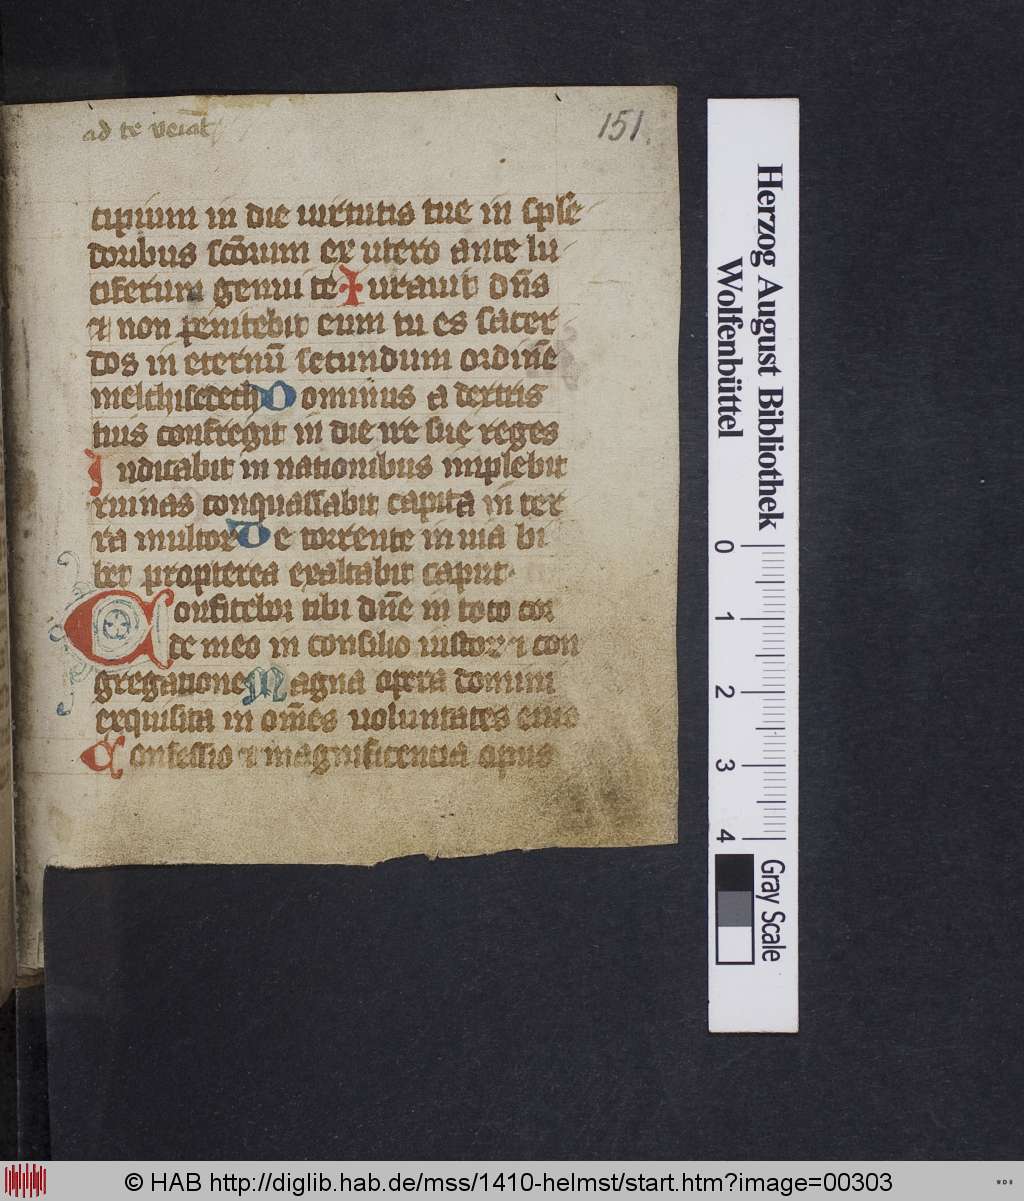 ad te veiat
151.
cipium in die uirtutis tue in sple
doribus scōrum ex utero ante lu
ciferum genui te Iurauit dn̄s
⁊ non penitebit eum tu es sacer
dos in eternū secundum ordinē
melchisedech Dominus a dextris
tuis confregit in die ire sue reges
Iudicabit in nationibus implebit
ruinas conquassabit capita in ter
ra multor De torrente in uia bi
bet propterea exaltabit caput
Confitebor tibi dn̄e in toto cor
de meo in consilio iustor ⁊ con
gregatione Magna opera domini
exquisita in om̄es uoluntates eius
Confessio ⁊ magnificencia opus
Herzog August Bibliothek
Wolfenbüttel
0 1 2 3 4
Gray Scale
© HAB http://diglib.hab.de/mss/1410-helmst/start.htm?image=00303